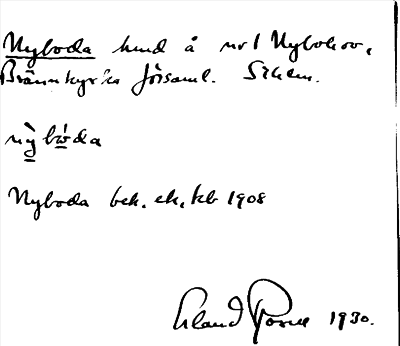 Nyboda hmd å nr 1 Nybohov,
Brännkyrka församl. Sthlm.
nỳbo̱da
Nyboda bek. ek. kb 1908
Erland Rosell 1930.